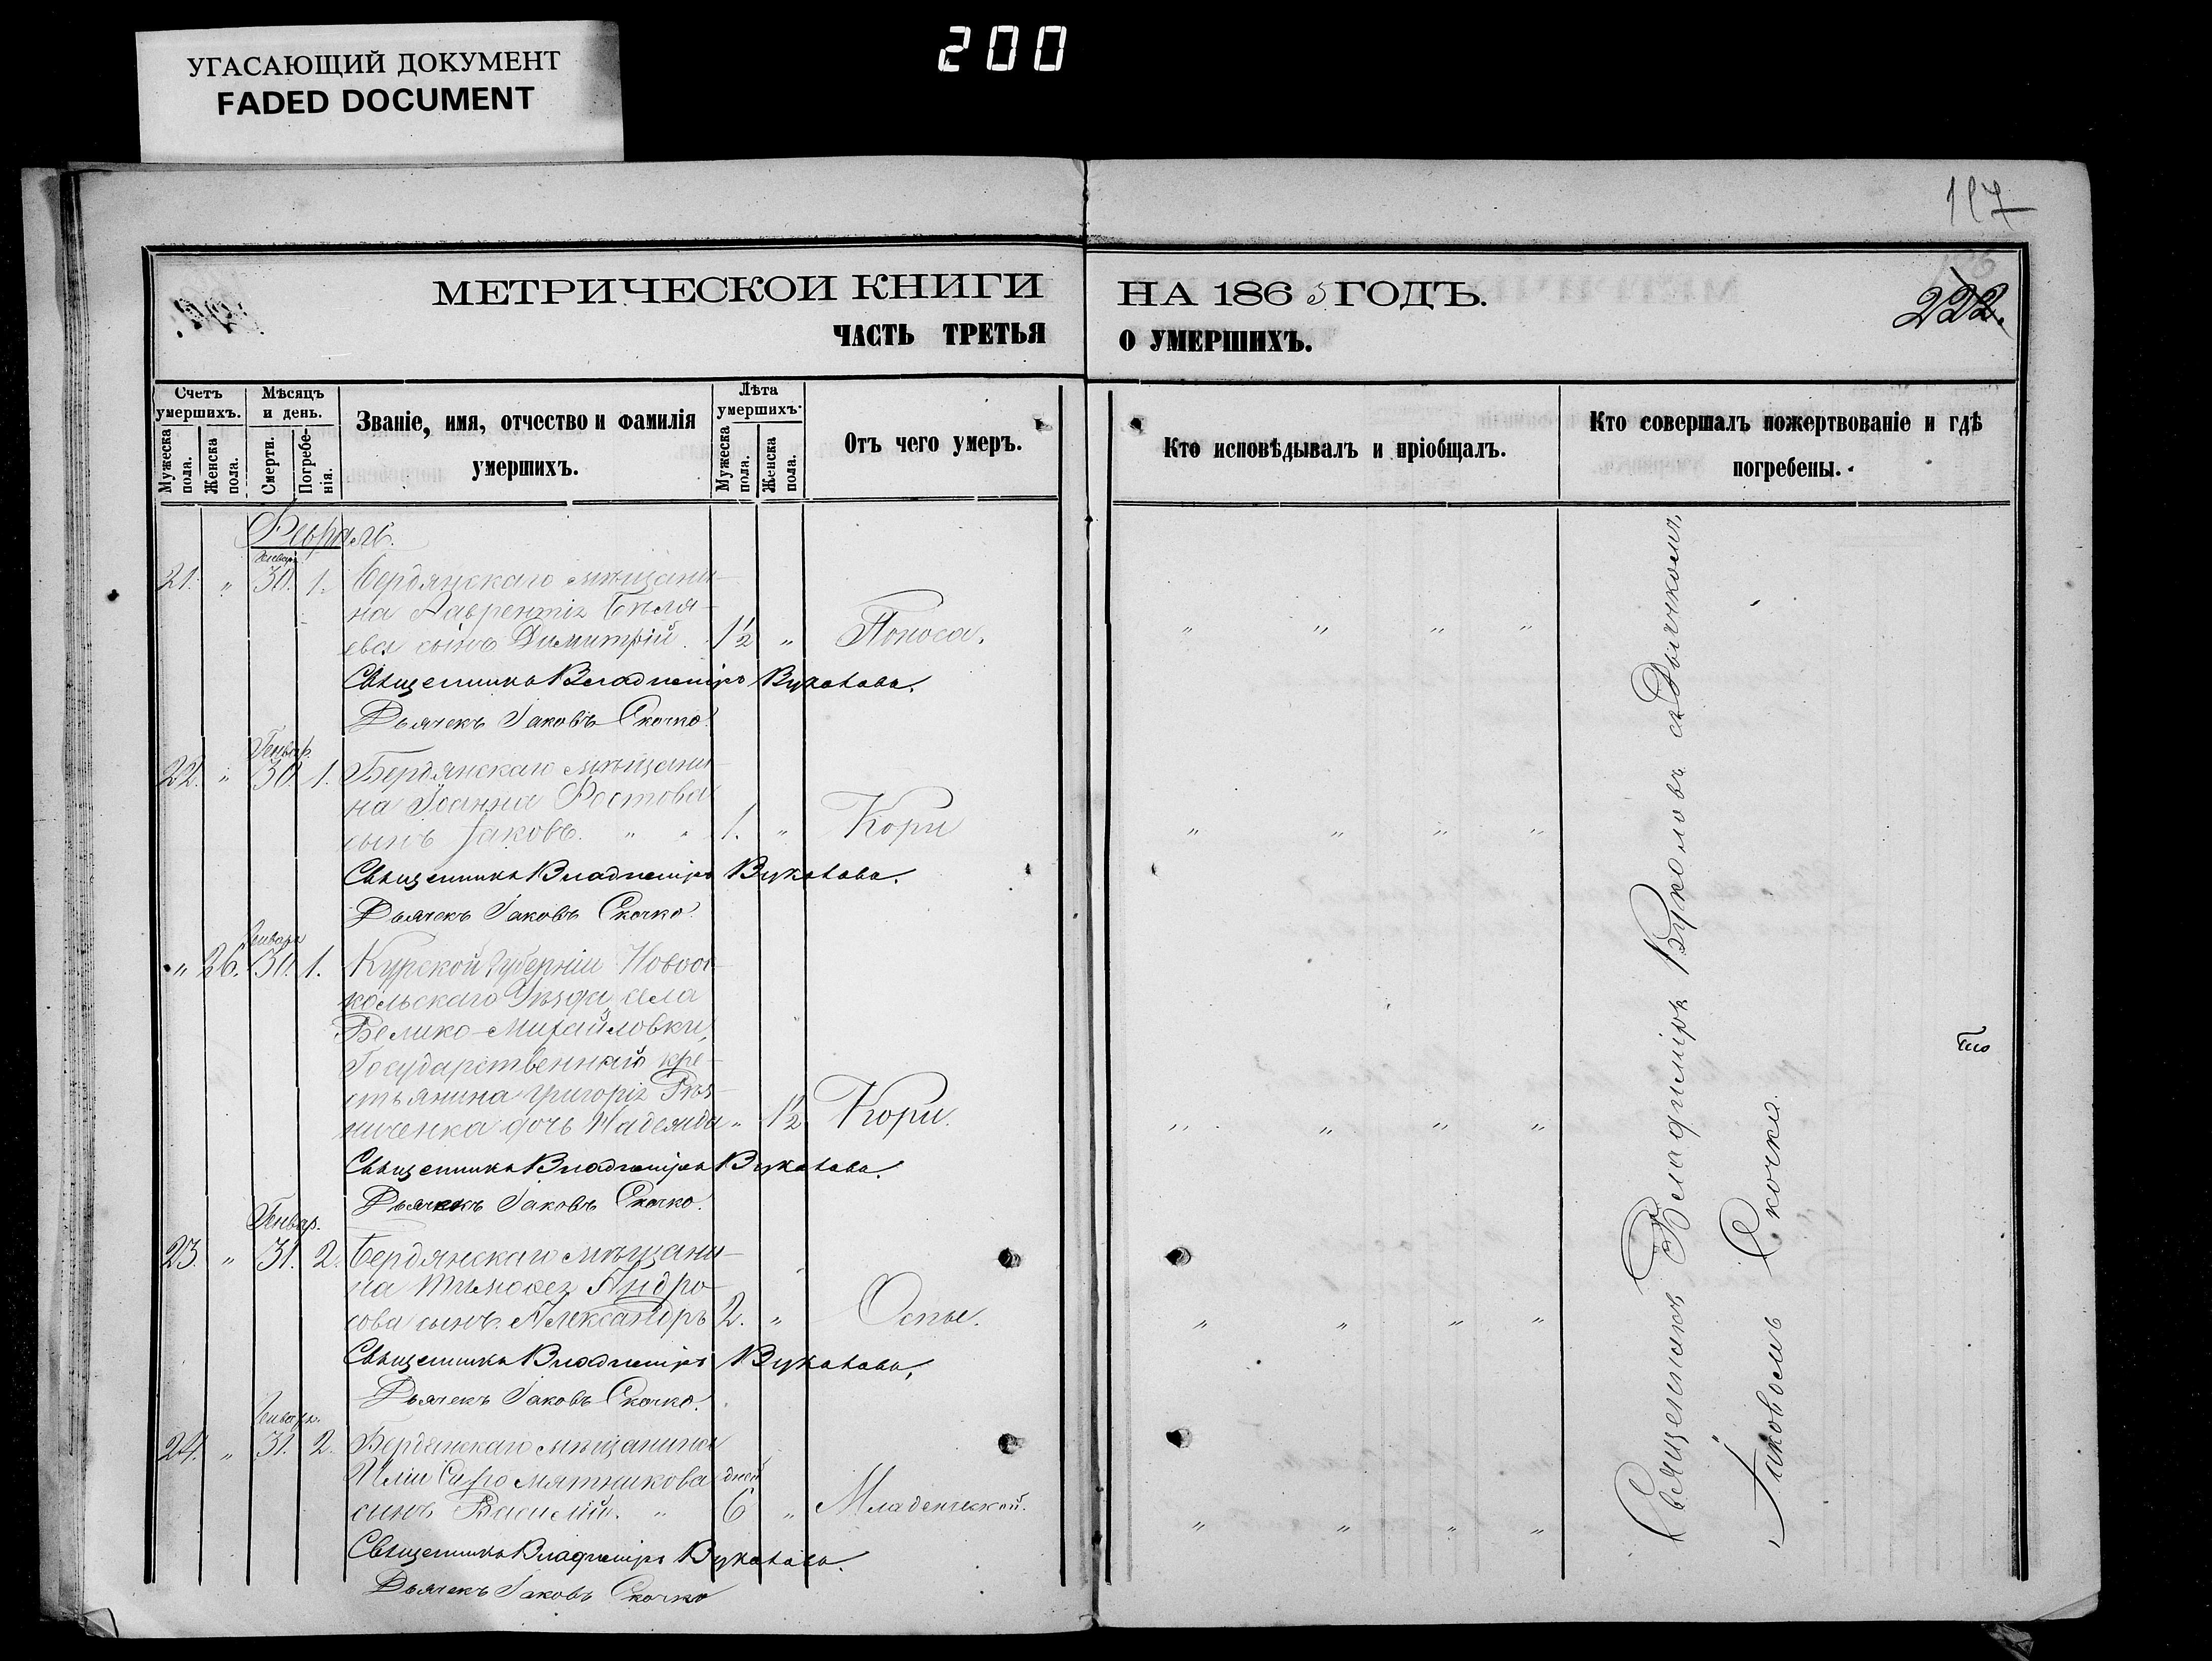 200
УГАСАЮЩИЙ ДОКУМЕНТ
FADED DOCUMENT
МЕТРИЧЕСКОЙ КНИГИ НА 1865 ГОДЪ.
ЧАСТЬ ТРЕТЬЯ О УМЕРШИХЪ.
222.
Счетъ умершихъ.
Мужеска пола.
Женска пола.
Мѣсяцъ и день.
Смерти.
Погребенія.
Званіе, имя, отчество и фамилія умершихъ.
Лѣта умершихъ.
Мужеска пола.
Женска пола.
Отъ чего умеръ.
Кто исповѣдывалъ и пріобщалъ.
Кто совершалъ пожертвованіе и гдѣ погребены.
Февраль.
Январ.
21. " 30. 1. Бердянскаго мѣщани-
на Лаврентія Бѣля-
ева сынъ Димитрій. 1½ " Поноса. " " " "
Священникъ Владиміръ Вуколовъ.
Дьячекъ Іаковъ Скочко
Генвар.
22. " 30. 1. Бердянскаго мѣщани-
на Іоанна Ростова
сынъ Іаковъ. " " 1. " Кори " " " "
Священникъ Владиміръ Вуколовъ.
Дьячекъ Іаковъ Скочко.
Января
" 26. 30. 1. Курской Губерніи Новоос-
кольскаго Уѣзда села
Велико-Михайловки,
Государственнаго кре-
стьянина Григорія Рѣз-
ниченка дочь Надежда " 1½ Кори. " " " "
Священникъ Владиміръ Вуколовъ.
Дьячекъ Іаковъ Скочко.
Генвар.
23. " 31. 2. Бердянскаго мѣщани-
на Тимофея Андро-
сова сынъ Александръ 2. " Оспы. " " " "
Священникъ Владиміръ Вуколовъ.
Дьячекъ Іаковъ Скочко.
Январ.
24. " 31. 2. Бердянскаго мѣщанина
Иліи Сыромятникова дней
сынъ Василій. " 6 " Младенческой. " " " "
Священникъ Владиміръ Вуколовъ.
Дьячекъ Іаковъ Скочко
Священникъ Владиміръ Вуколовъ съ Дьячкомъ
Іаковомъ Скочко.